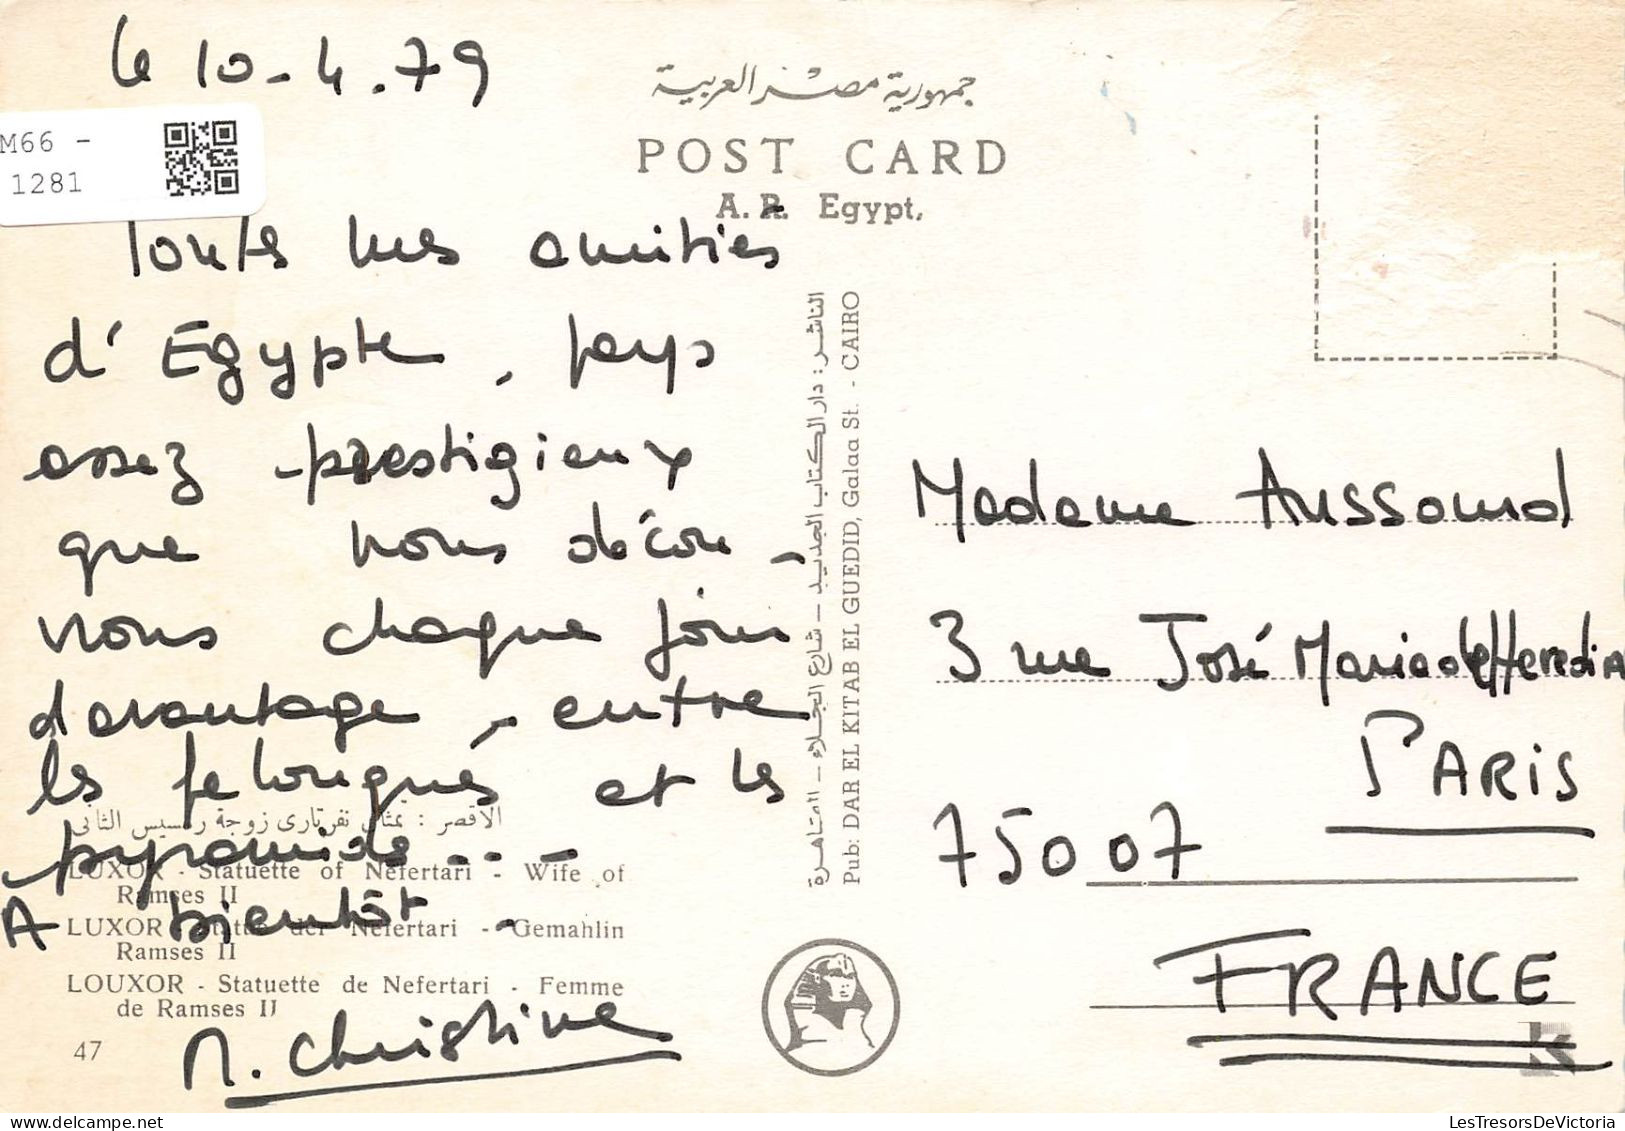 le 10-4.79
M66 -
1281
جمهورية مصر العربية
POST CARD
A. R. Egypt.
Toutes mes amitiés
d'Egypte, pays
assez prestigieux
que nous décou-
vrons chaque jour
davantage, entre
les felouques et les
pyramides...
A bientôt.
M. Christine
الاقصر : تمثال نفرتارى زوجة رمسيس الثانى
LUXOR - Statuette of Nefertari - Wife of
Ramses II
LUXOR - Statue der Nefertari - Gemahlin
Ramses II
LOUXOR - Statuette de Nefertari - Femme
de Ramses II
47
الناشر : دار الكتاب الجديد – شارع الجلاء – القاهرة
Pub: DAR EL KITAB EL GUEDID, Galaa St. - CAIRO
Madame Aussourd
3 rue José Maria de Heredia
PARIS
75007
FRANCE
LesTresorsDeVictoria